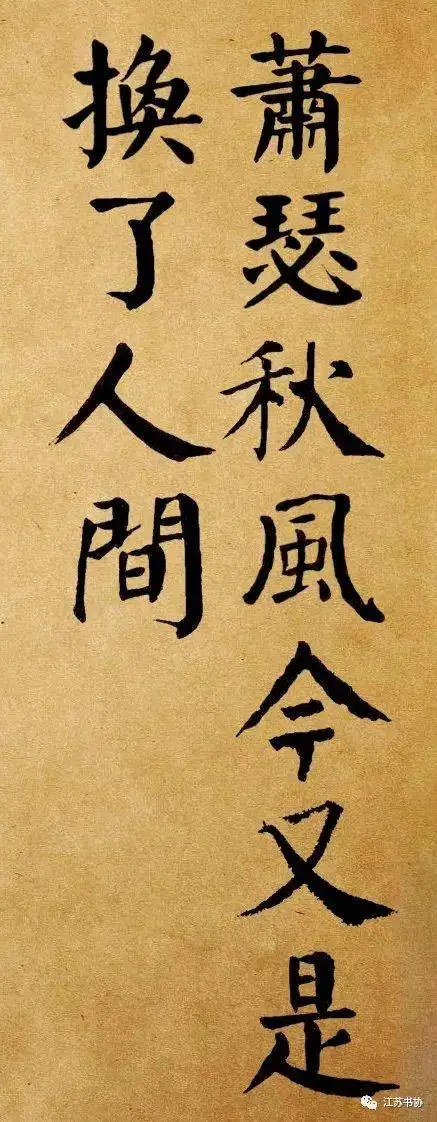 蕭瑟秋風今又是
換了人間
江苏书协